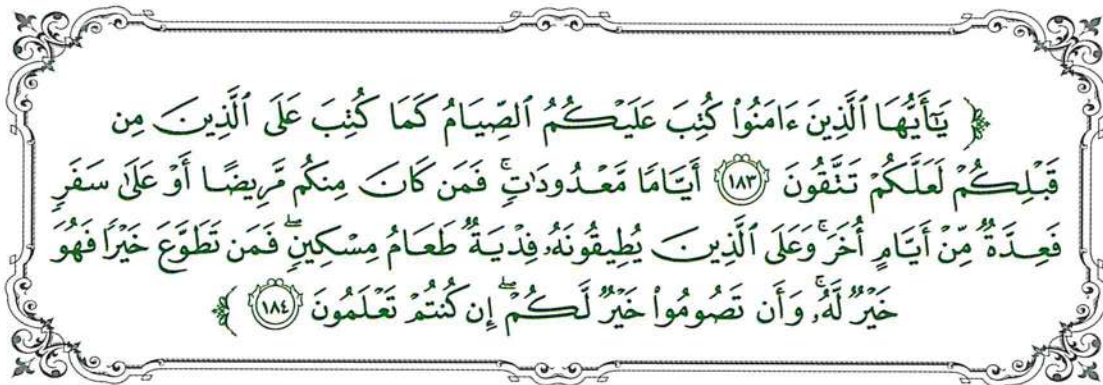 ﴿ يَٰٓأَيُّهَا ٱلَّذِينَ ءَامَنُوا۟ كُتِبَ عَلَيْكُمُ ٱلصِّيَامُ كَمَا كُتِبَ عَلَى ٱلَّذِينَ مِن
قَبْلِكُمْ لَعَلَّكُمْ تَتَّقُونَ ١٨٣ أَيَّامًا مَّعْدُودَٰتٍ ۚ فَمَن كَانَ مِنكُم مَّرِيضًا أَوْ عَلَىٰ سَفَرٍ
فَعِدَّةٌ مِّنْ أَيَّامٍ أُخَرَ ۚ وَعَلَى ٱلَّذِينَ يُطِيقُونَهُۥ فِدْيَةٌ طَعَامُ مِسْكِينٍ ۖ فَمَن تَطَوَّعَ خَيْرًا فَهُوَ
خَيْرٌ لَّهُۥ ۚ وَأَن تَصُومُوا۟ خَيْرٌ لَّكُمْ ۖ إِن كُنتُمْ تَعْلَمُونَ ١٨٤ ﴾